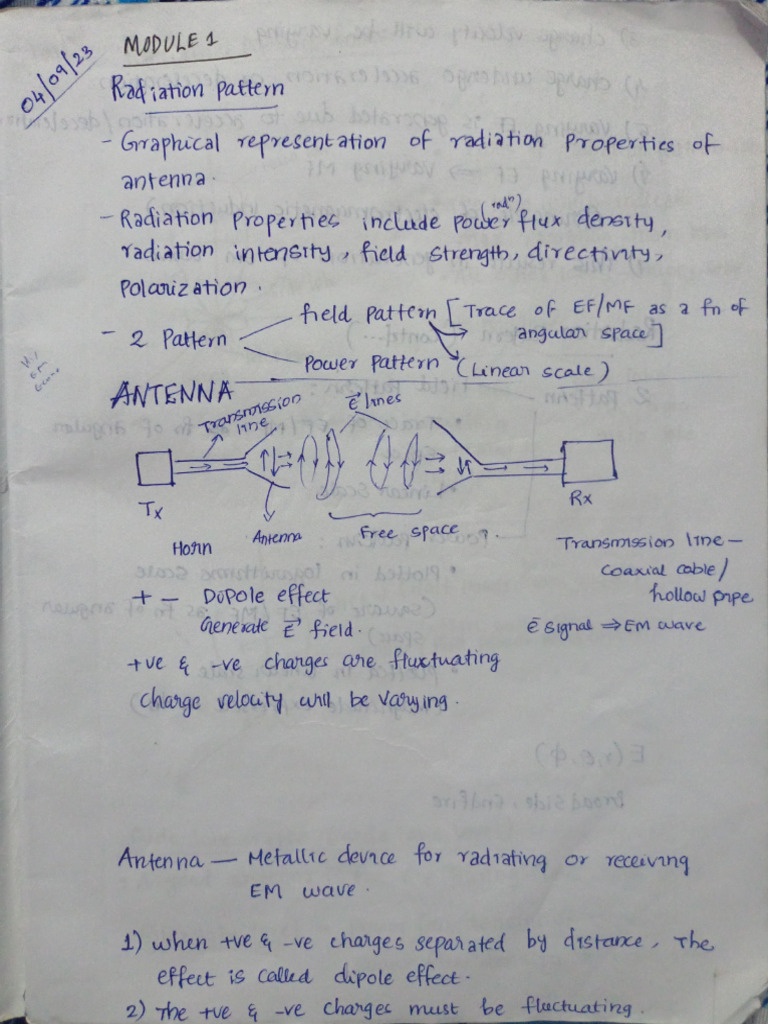 04/09/23
MODULE 1
Radiation Pattern
- Graphical representation of radiation Properties of
antenna.
- Radiation Properties include power (radn) flux density,
radiation intensity, field strength, directivity,
Polarization.
- 2 Pattern
field pattern [Trace of EF/MF as a fn of
angular space]
Power Pattern (Linear scale)
ANTENNA
Transmission
line
E lines
Tx
Rx
Horn
Antenna
Free space
Transmission line -
coaxial cable/
hollow pipe
+ - Dipole effect
Generate E field.
ē signal ⇒ EM wave
+ve & -ve charges are fluctuating
charge velocity will be varying.
Antenna - Metallic device for radiating or receiving
EM wave.
1) when +ve & -ve charges separated by distance, The
effect is called dipole effect.
2) The +ve & -ve charges must be fluctuating.